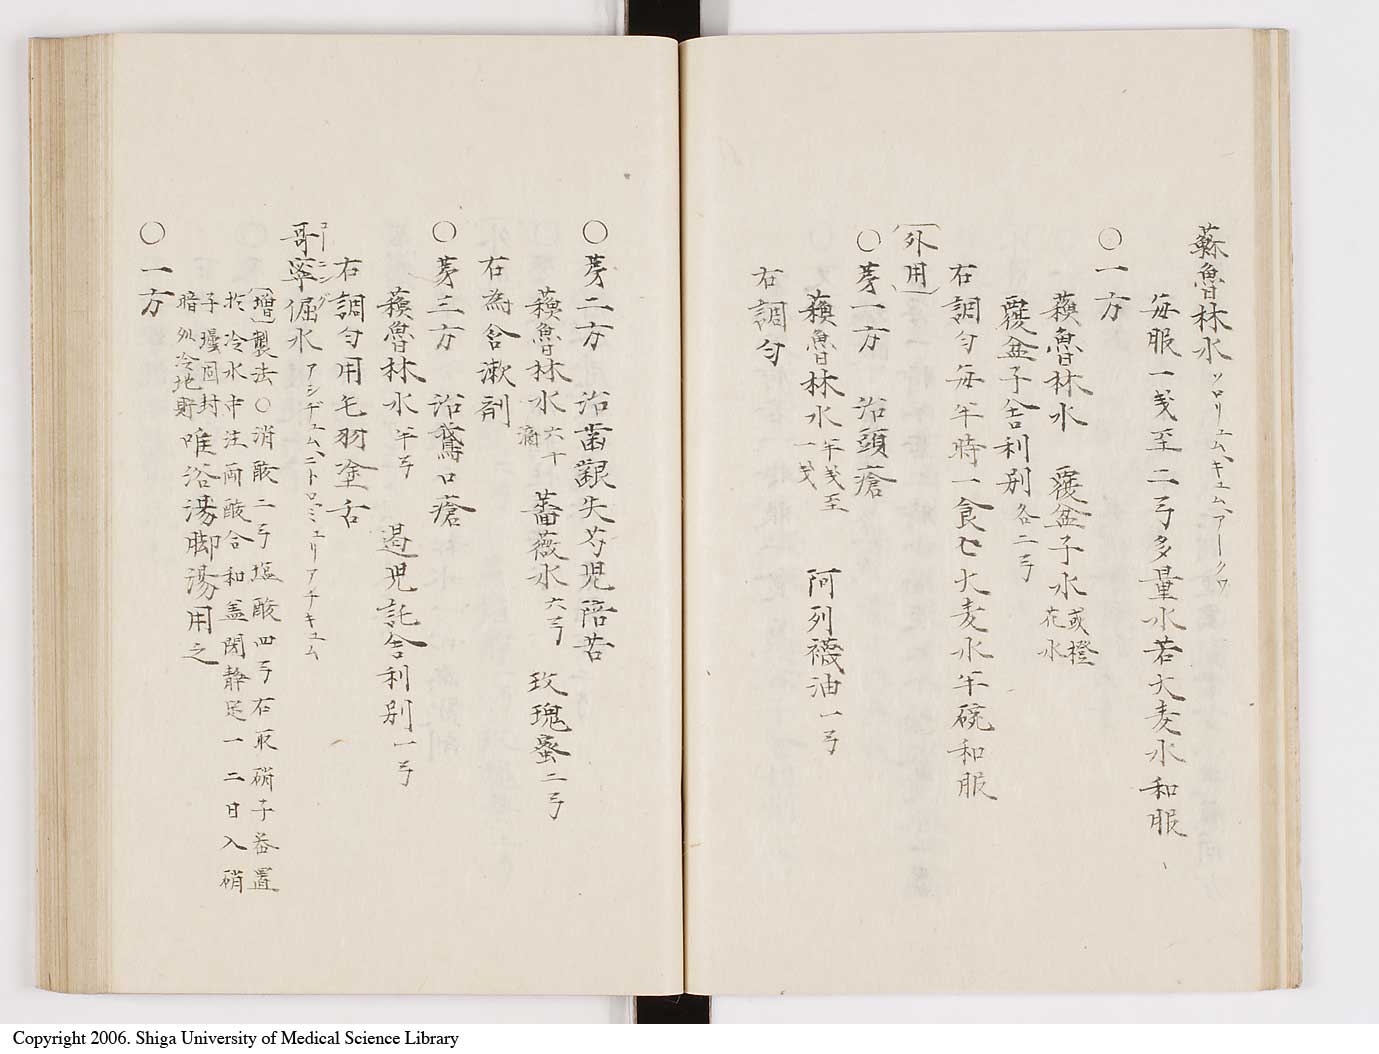 蘇魯林水 ソロリユム、キユム、アークワ
毎服一戔至二弓多量水若大麦水和服
○一方
蘓魯林水 覆盆子水 或橙花水
覆盆子舎利別 各二弓
右調匀毎半時一食匕大麦水半碗和服
外用
○㐧一方 治頭瘡
蘓魯林水 半戔至一戔 阿列襪油 一弓
右調匀
○㐧二方 治歯齦失苟児陪苦
蘓魯林水 六十滴 薔薇水 六弓 玫瑰蜜 二弓
右為含漱剤
○㐧三方 治鵞口瘡
蘓魯林水 半弓 遏児託舎利別 一弓
右調匀用毛羽塗舌
哥寧倔水 コーニング アシヂユム、ニトロ、ミユリアチキユム
増 製法○消酸二弓塩酸四弓右取硝子器置
於冷水中注両酸合和盖閉静定一二日入硝
子壜固封
暗処冷地貯 唯浴湯脚湯用之
○一方
Copyright 2006. Shiga University of Medical Science Library